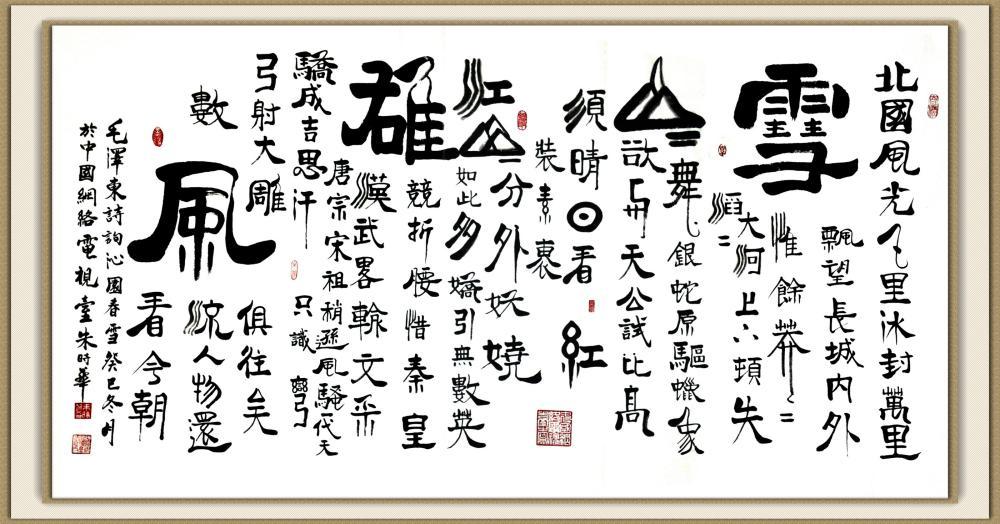 北國風光千里冰封萬里
雪
飄望長城內外
惟餘莽莽
大河上下頓失
滔滔
山
舞銀蛇原驅蠟象
欲與天公試比高
須晴日看紅
裝素裹
分外妖嬈
江山
如此多嬌引無數英
雄
競折腰惜秦皇
漢武畧輸文采
唐宗宋祖稍遜風騷一代天
驕成吉思汗
只識彎
弓射大雕
俱往矣
數
風
流人物還
看今朝
毛澤東詩詞沁園春雪癸巳冬月
於中國網絡電視臺朱時華